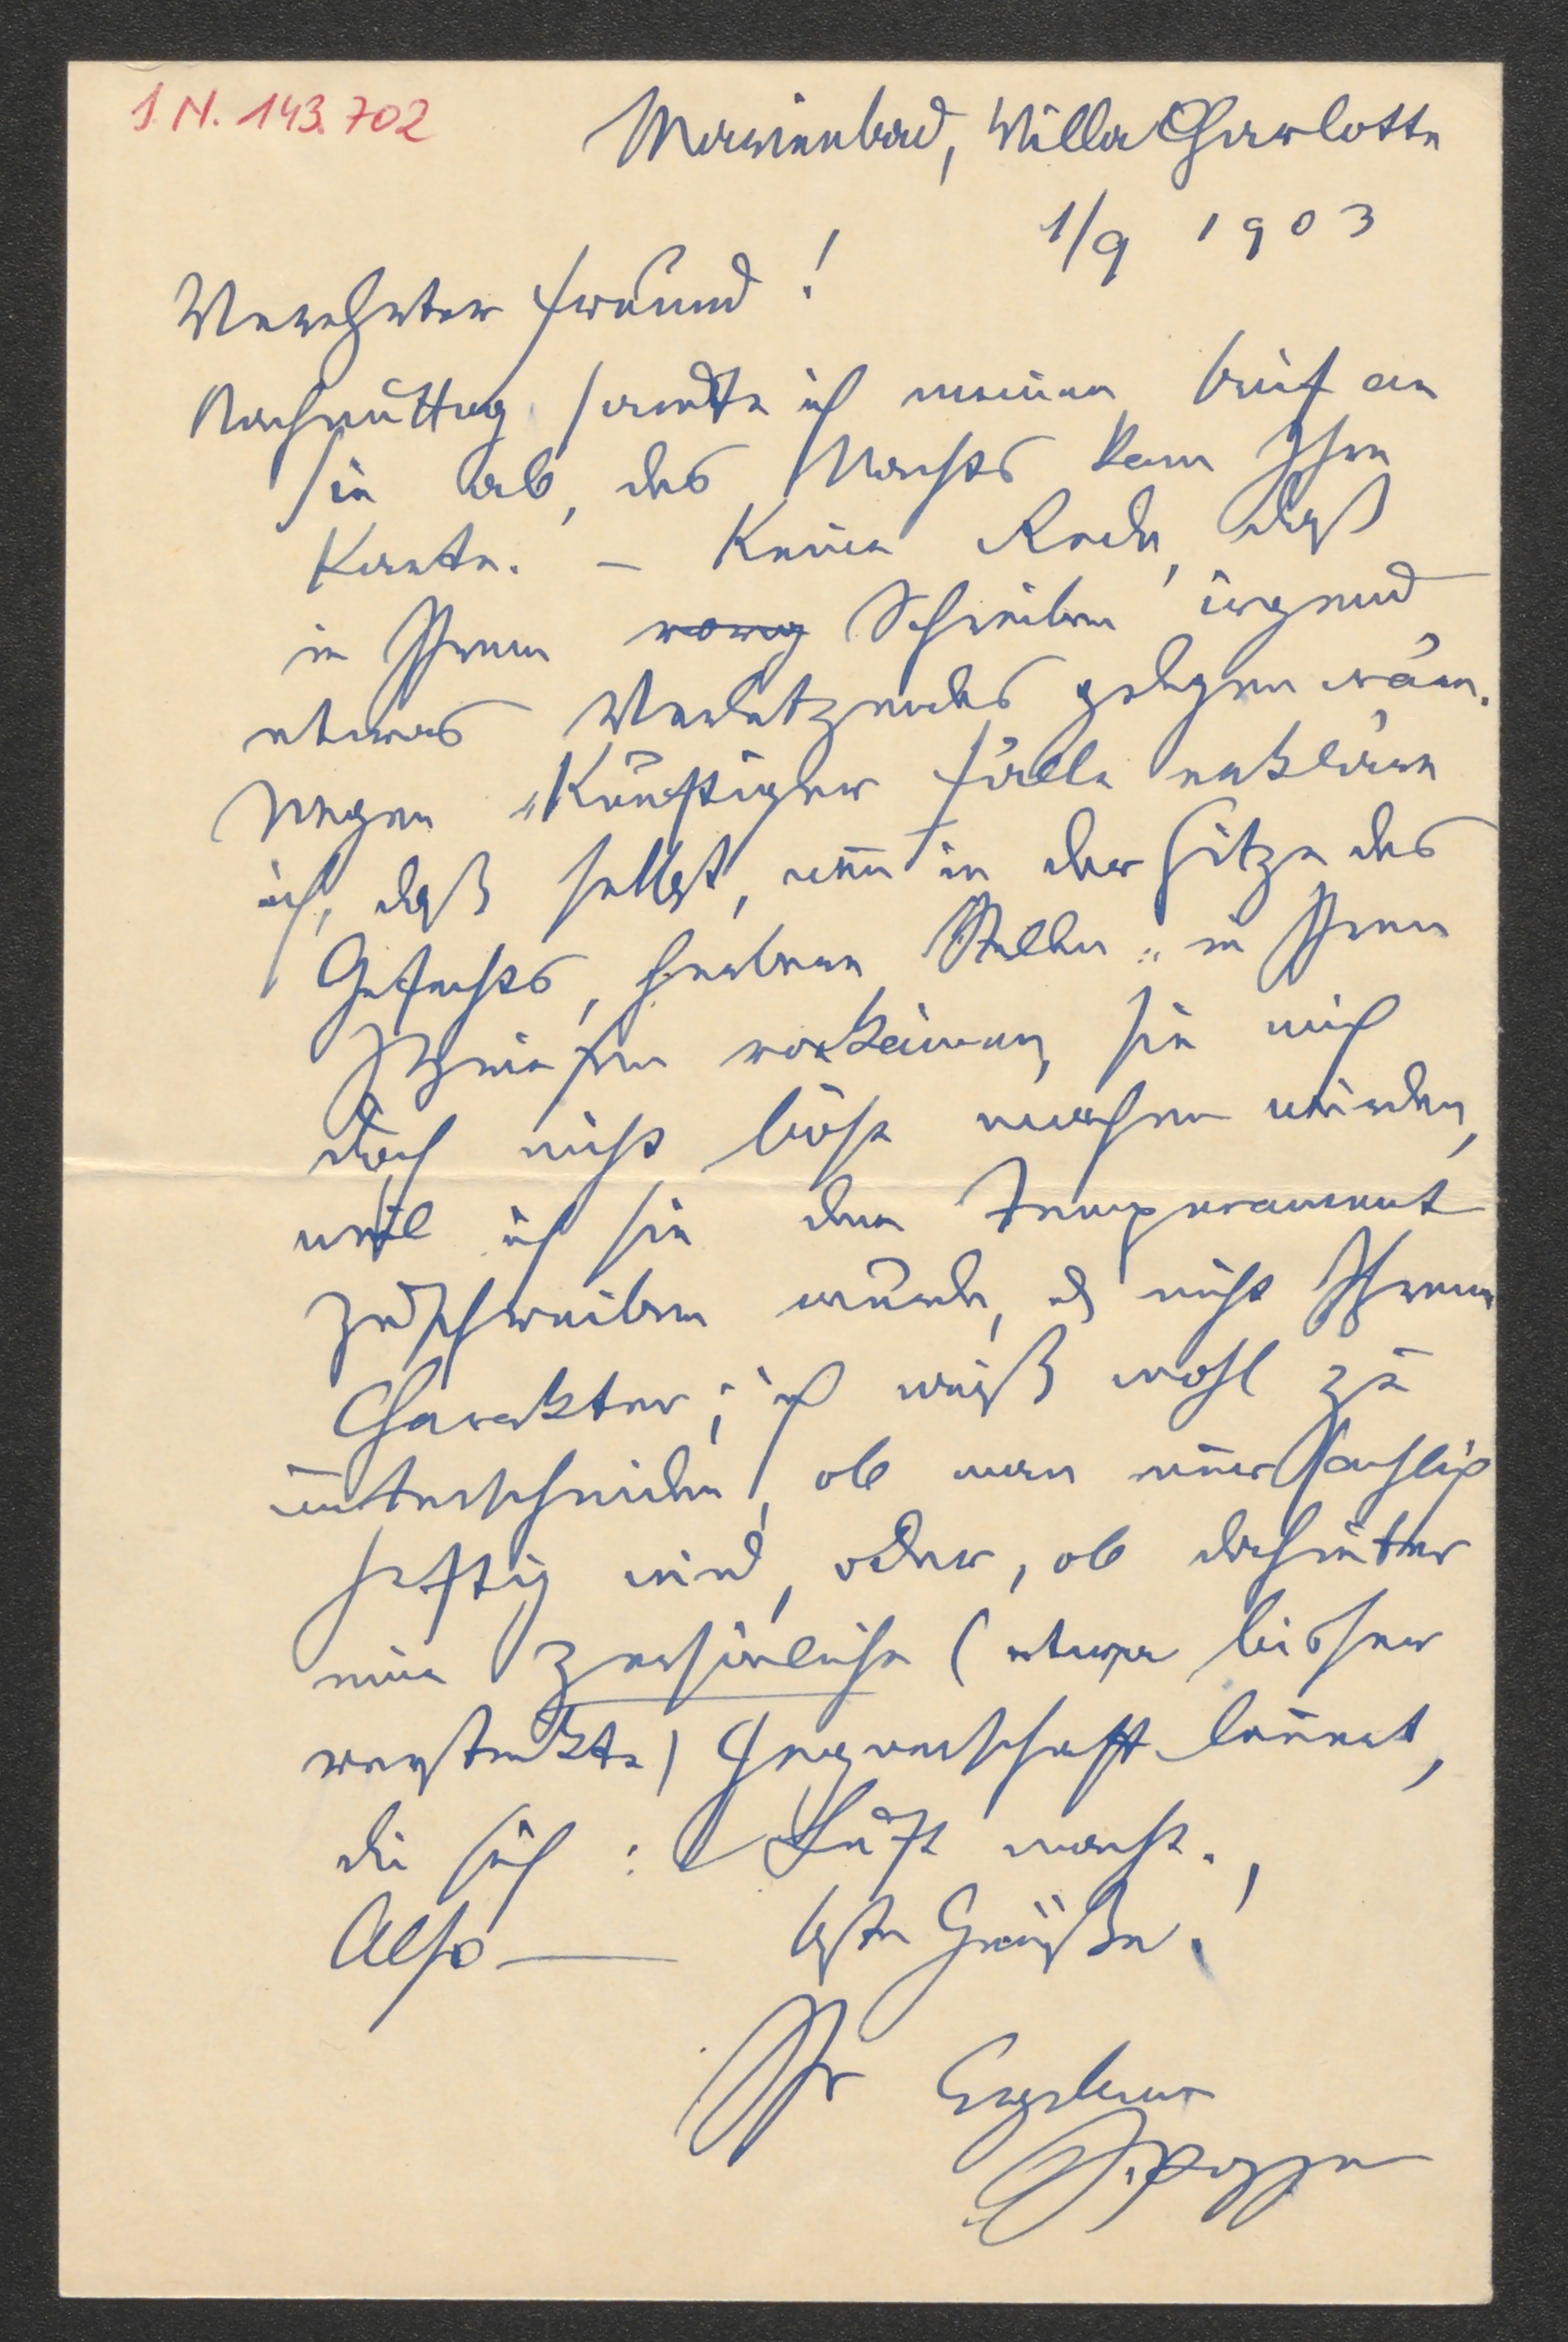 J. N. 143.702
Marienbad, Villa Charlotte
1/9 1903
Verehrter Freund!
Nachmittag sandte ich meinen Brief an
Sie ab, des Nachts kam Ihre
Karte. – Keine Rede, daß
in Ihrem vorig Schreiben irgend
etwas Verletzendes gelegen wäre.
Wegen „künftiger Fälle erkläre
ich, daß selbst, wenn in der Hitze des
Gefechts, herbere Stellen" in Ihren
Briefen vorkämen, sie mich
doch nicht böse machen würden,
weil ich sie dem Temperament
zuschreiben würde, u nicht Ihrem
Charakter; ich weiß wohl zu
unterscheiden, ob man nur sachlich
heftig wird, oder, ob dahinter
eine persönliche (etwa bisher
versteckte) Gegnerschaft lauert,
die sich: Luft macht.
Also — beste Grüße!
Ihr Ergebener
J. Popper